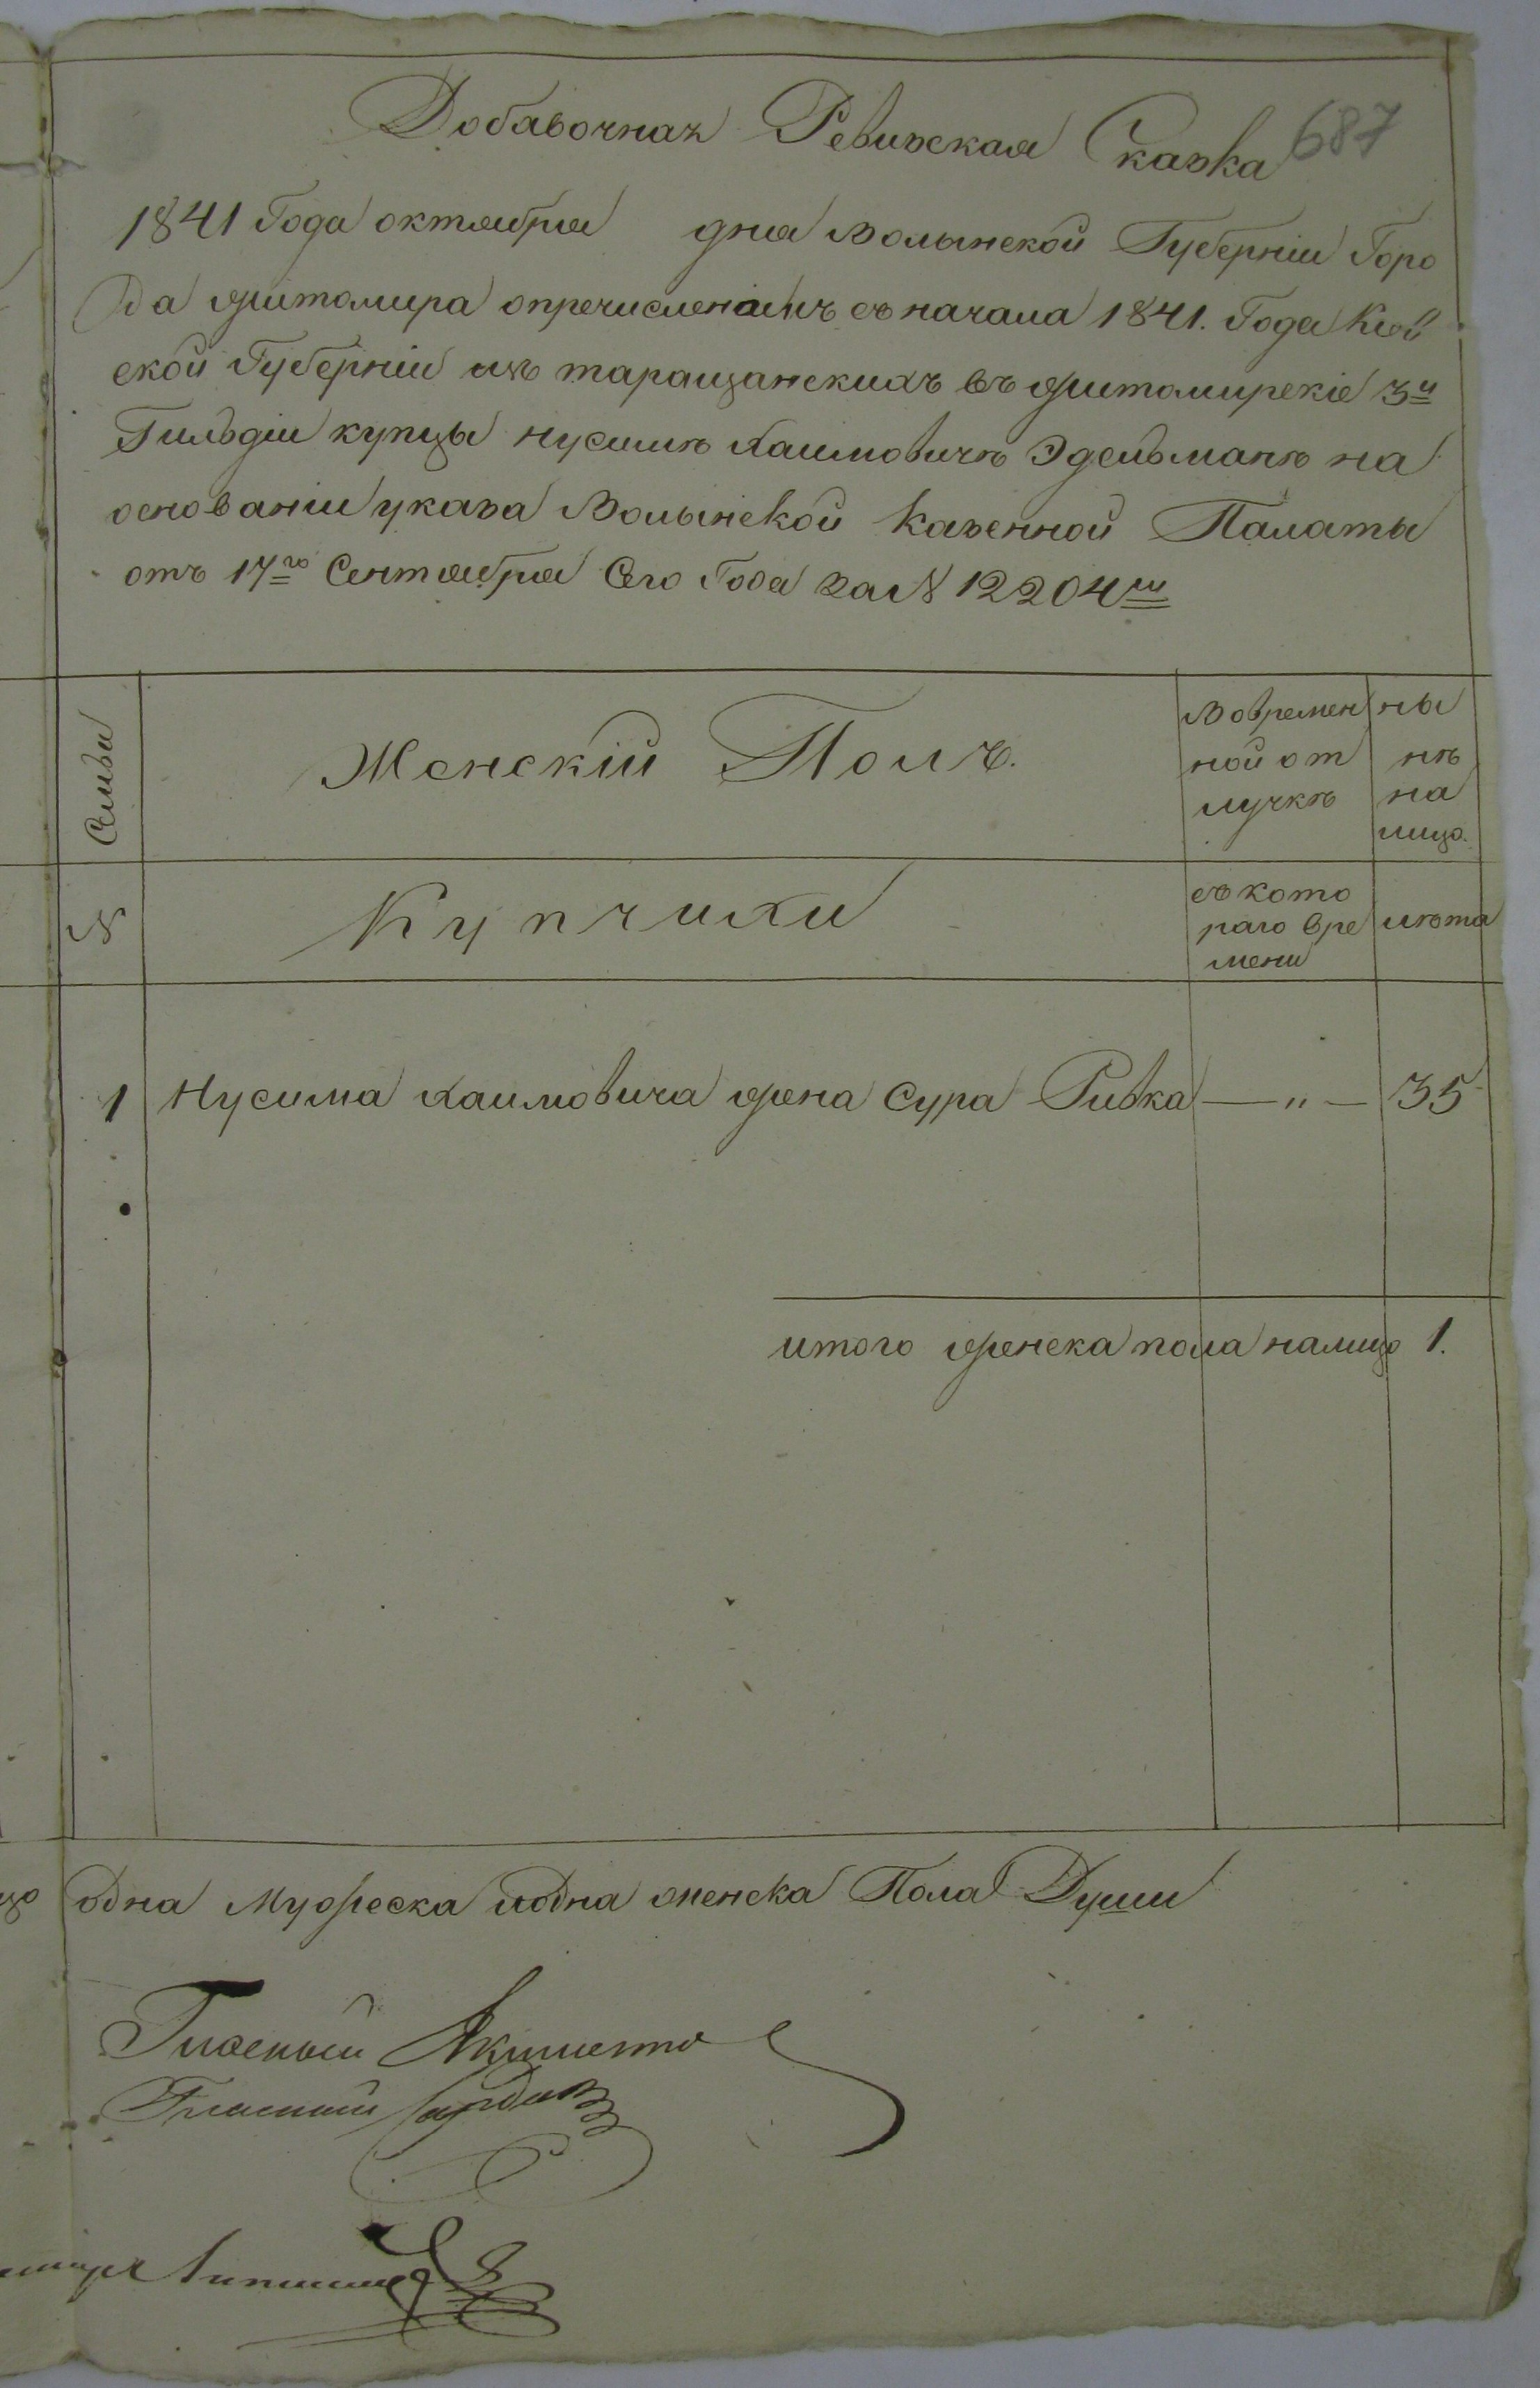 Добавочная Ревизская Сказка 687
1841 Года октября дня Волынской Губерніи Горо
да Житомира опречисленомъ съ начала 1841. Года Кіев
ской Губерніи изъ таращанскихъ въ Житомирскіе 3й
Гильдіи купцы Нусимѣ Хаимовичѣ Эдельманѣ на
основаніи указа Волынской Казенной Палаты
отъ 17го Сентября Сего Года за № 12204м
Семьи
Женскій Полъ.
Вовремен
ной от
лучкѣ
ны
нѣ
на
лицо.
№
Купчихи
съ кото
раго вре
мени
лѣта
1 Нусима Хаимовича жена Сура Ривка — „ — 35
итого женска пола налицо 1.
цо одна Мужеска иодна женска Пола Души
Гласный
Гласный